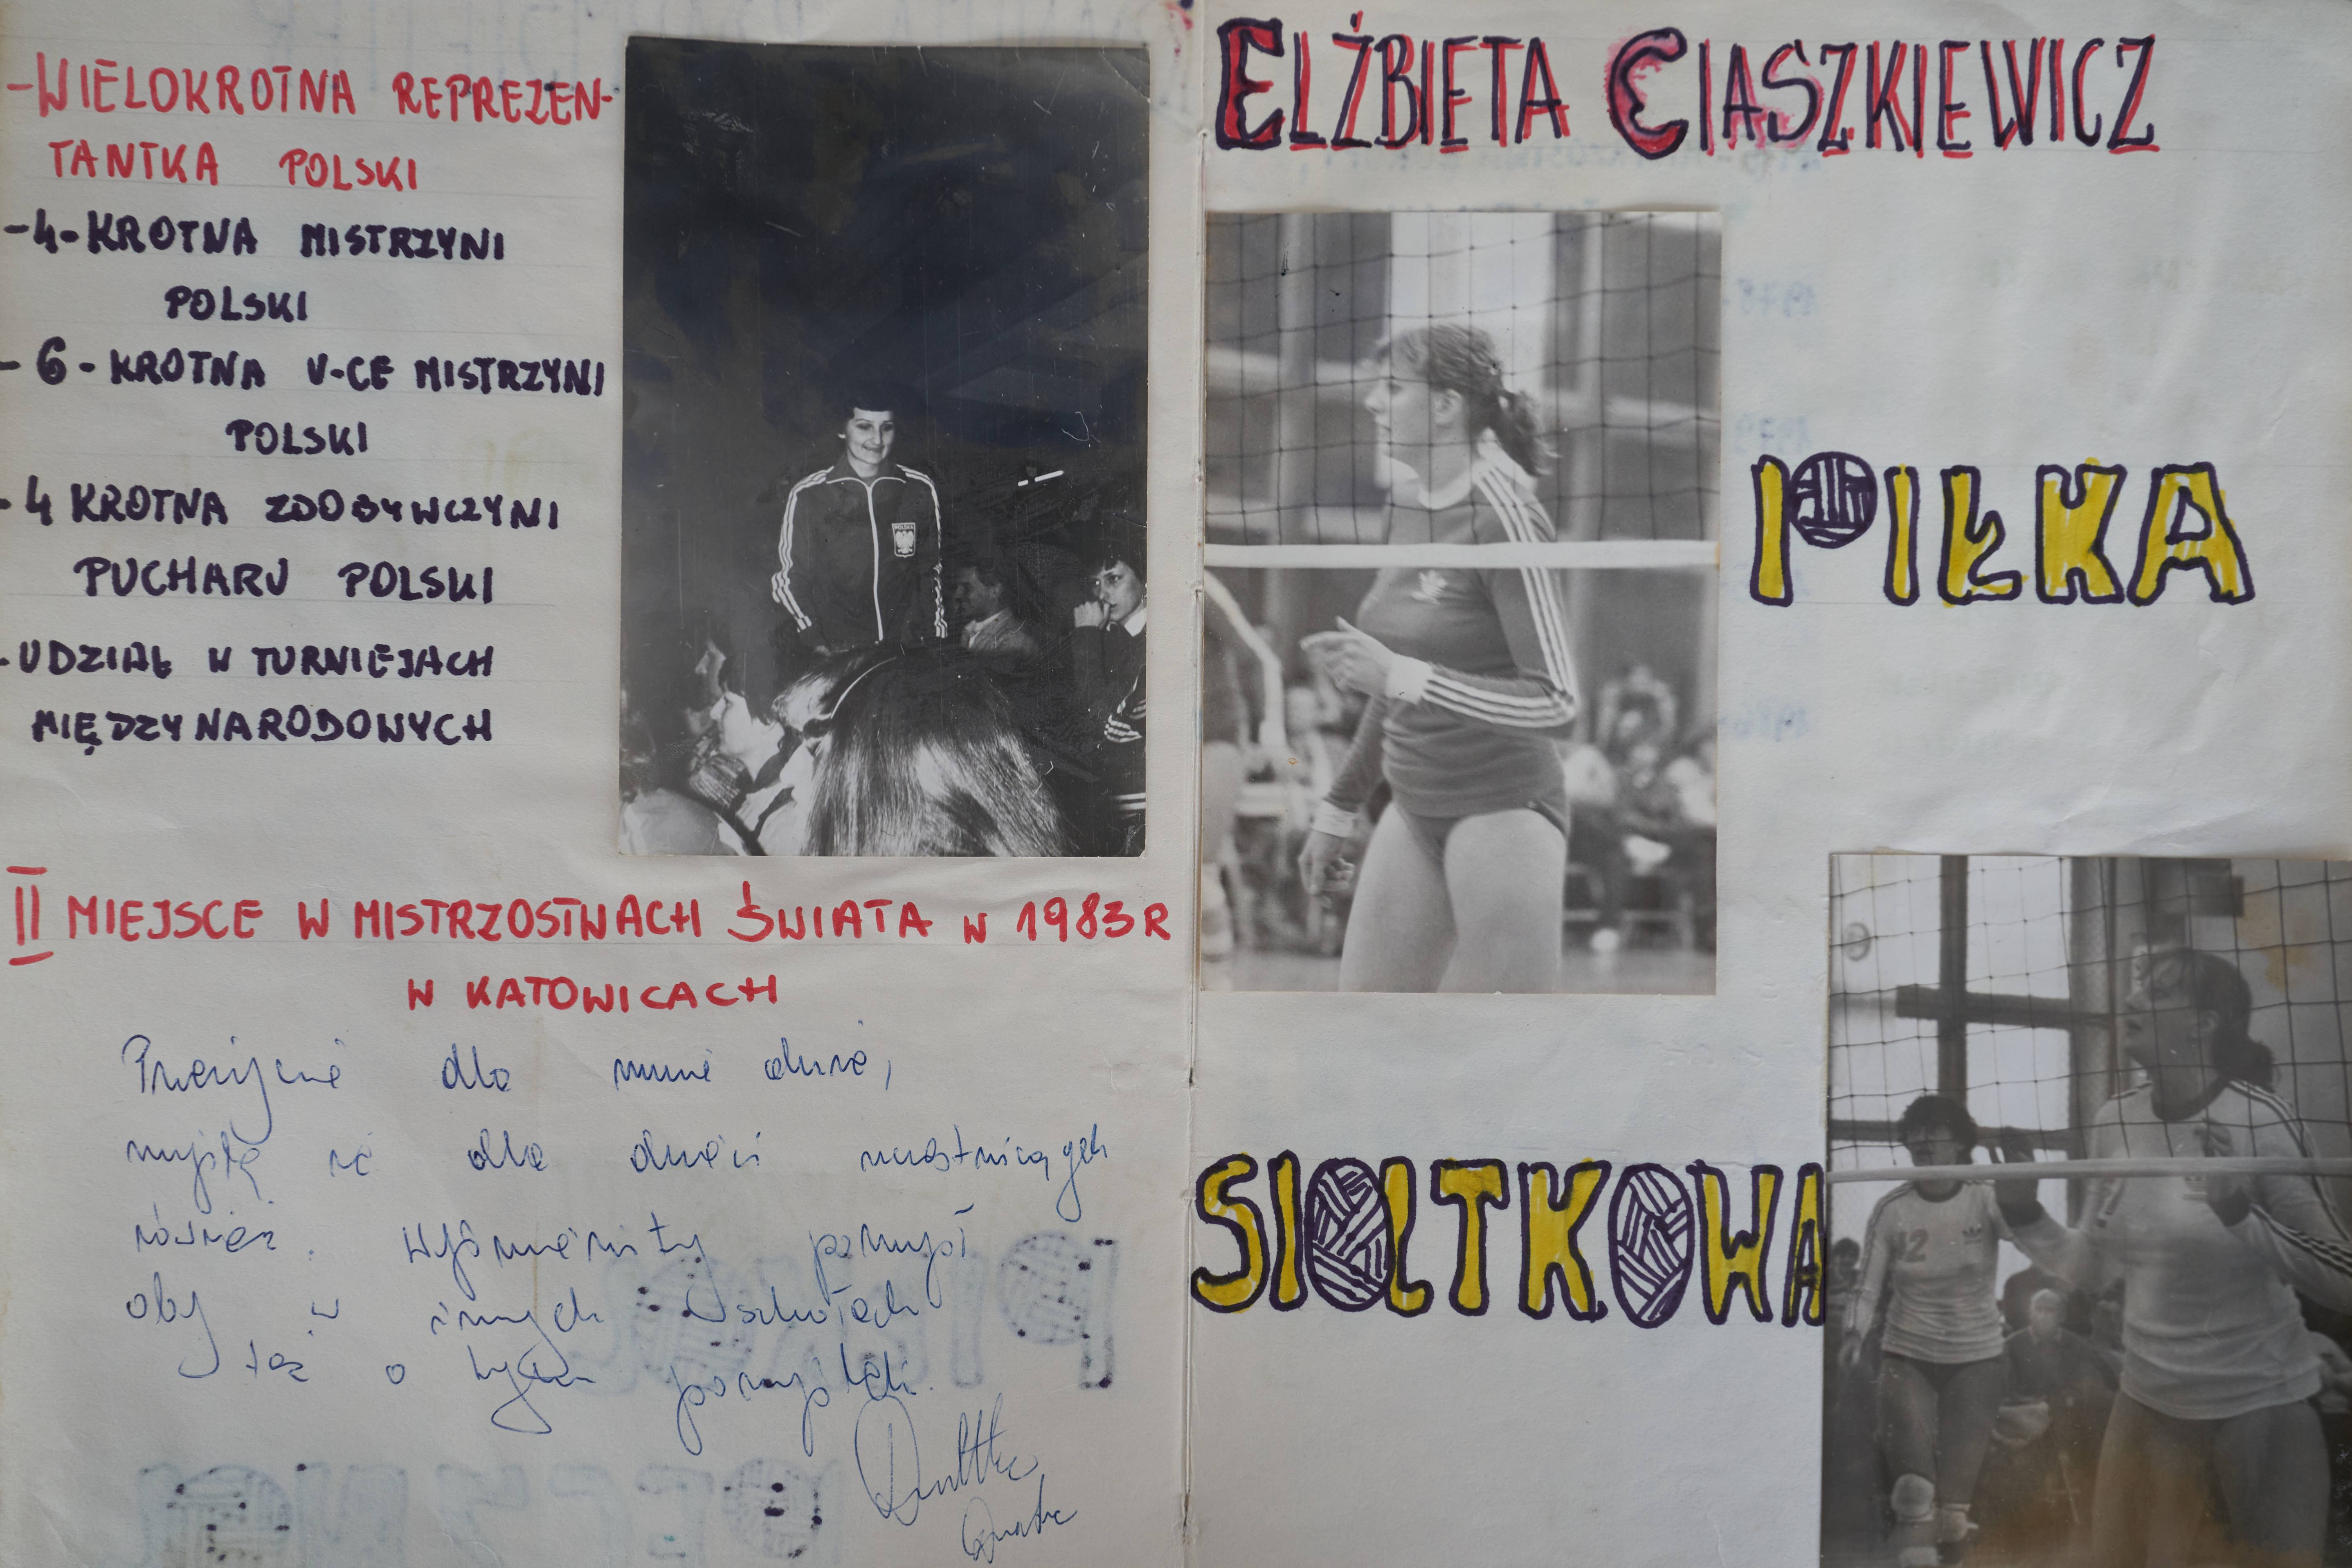 - WIELOKROTNA REPREZEN-
TANTKA POLSKI
- 4-KROTNA MISTRZYNI
POLSKI
- 6-KROTNA V-CE MISTRZYNI
POLSKI
- 4 KROTNA ZDOBYWCZYNI
PUCHARU POLSKI
- UDZIAŁ W TURNIEJACH
MIĘDZYNARODOWYCH
POLSKA
II MIEJSCE W MISTRZOSTWACH ŚWIATA W 1983 R
W KATOWICACH
Przeżycie dla mnie duże,
myślę że dla dzieci uczestniczących
również. Wyśmienity pomysł
oby w innych szkołach
też o tym pomyśleli.
ELŻBIETA CIASZKIEWICZ
PIŁKA
SIATKOWA
12